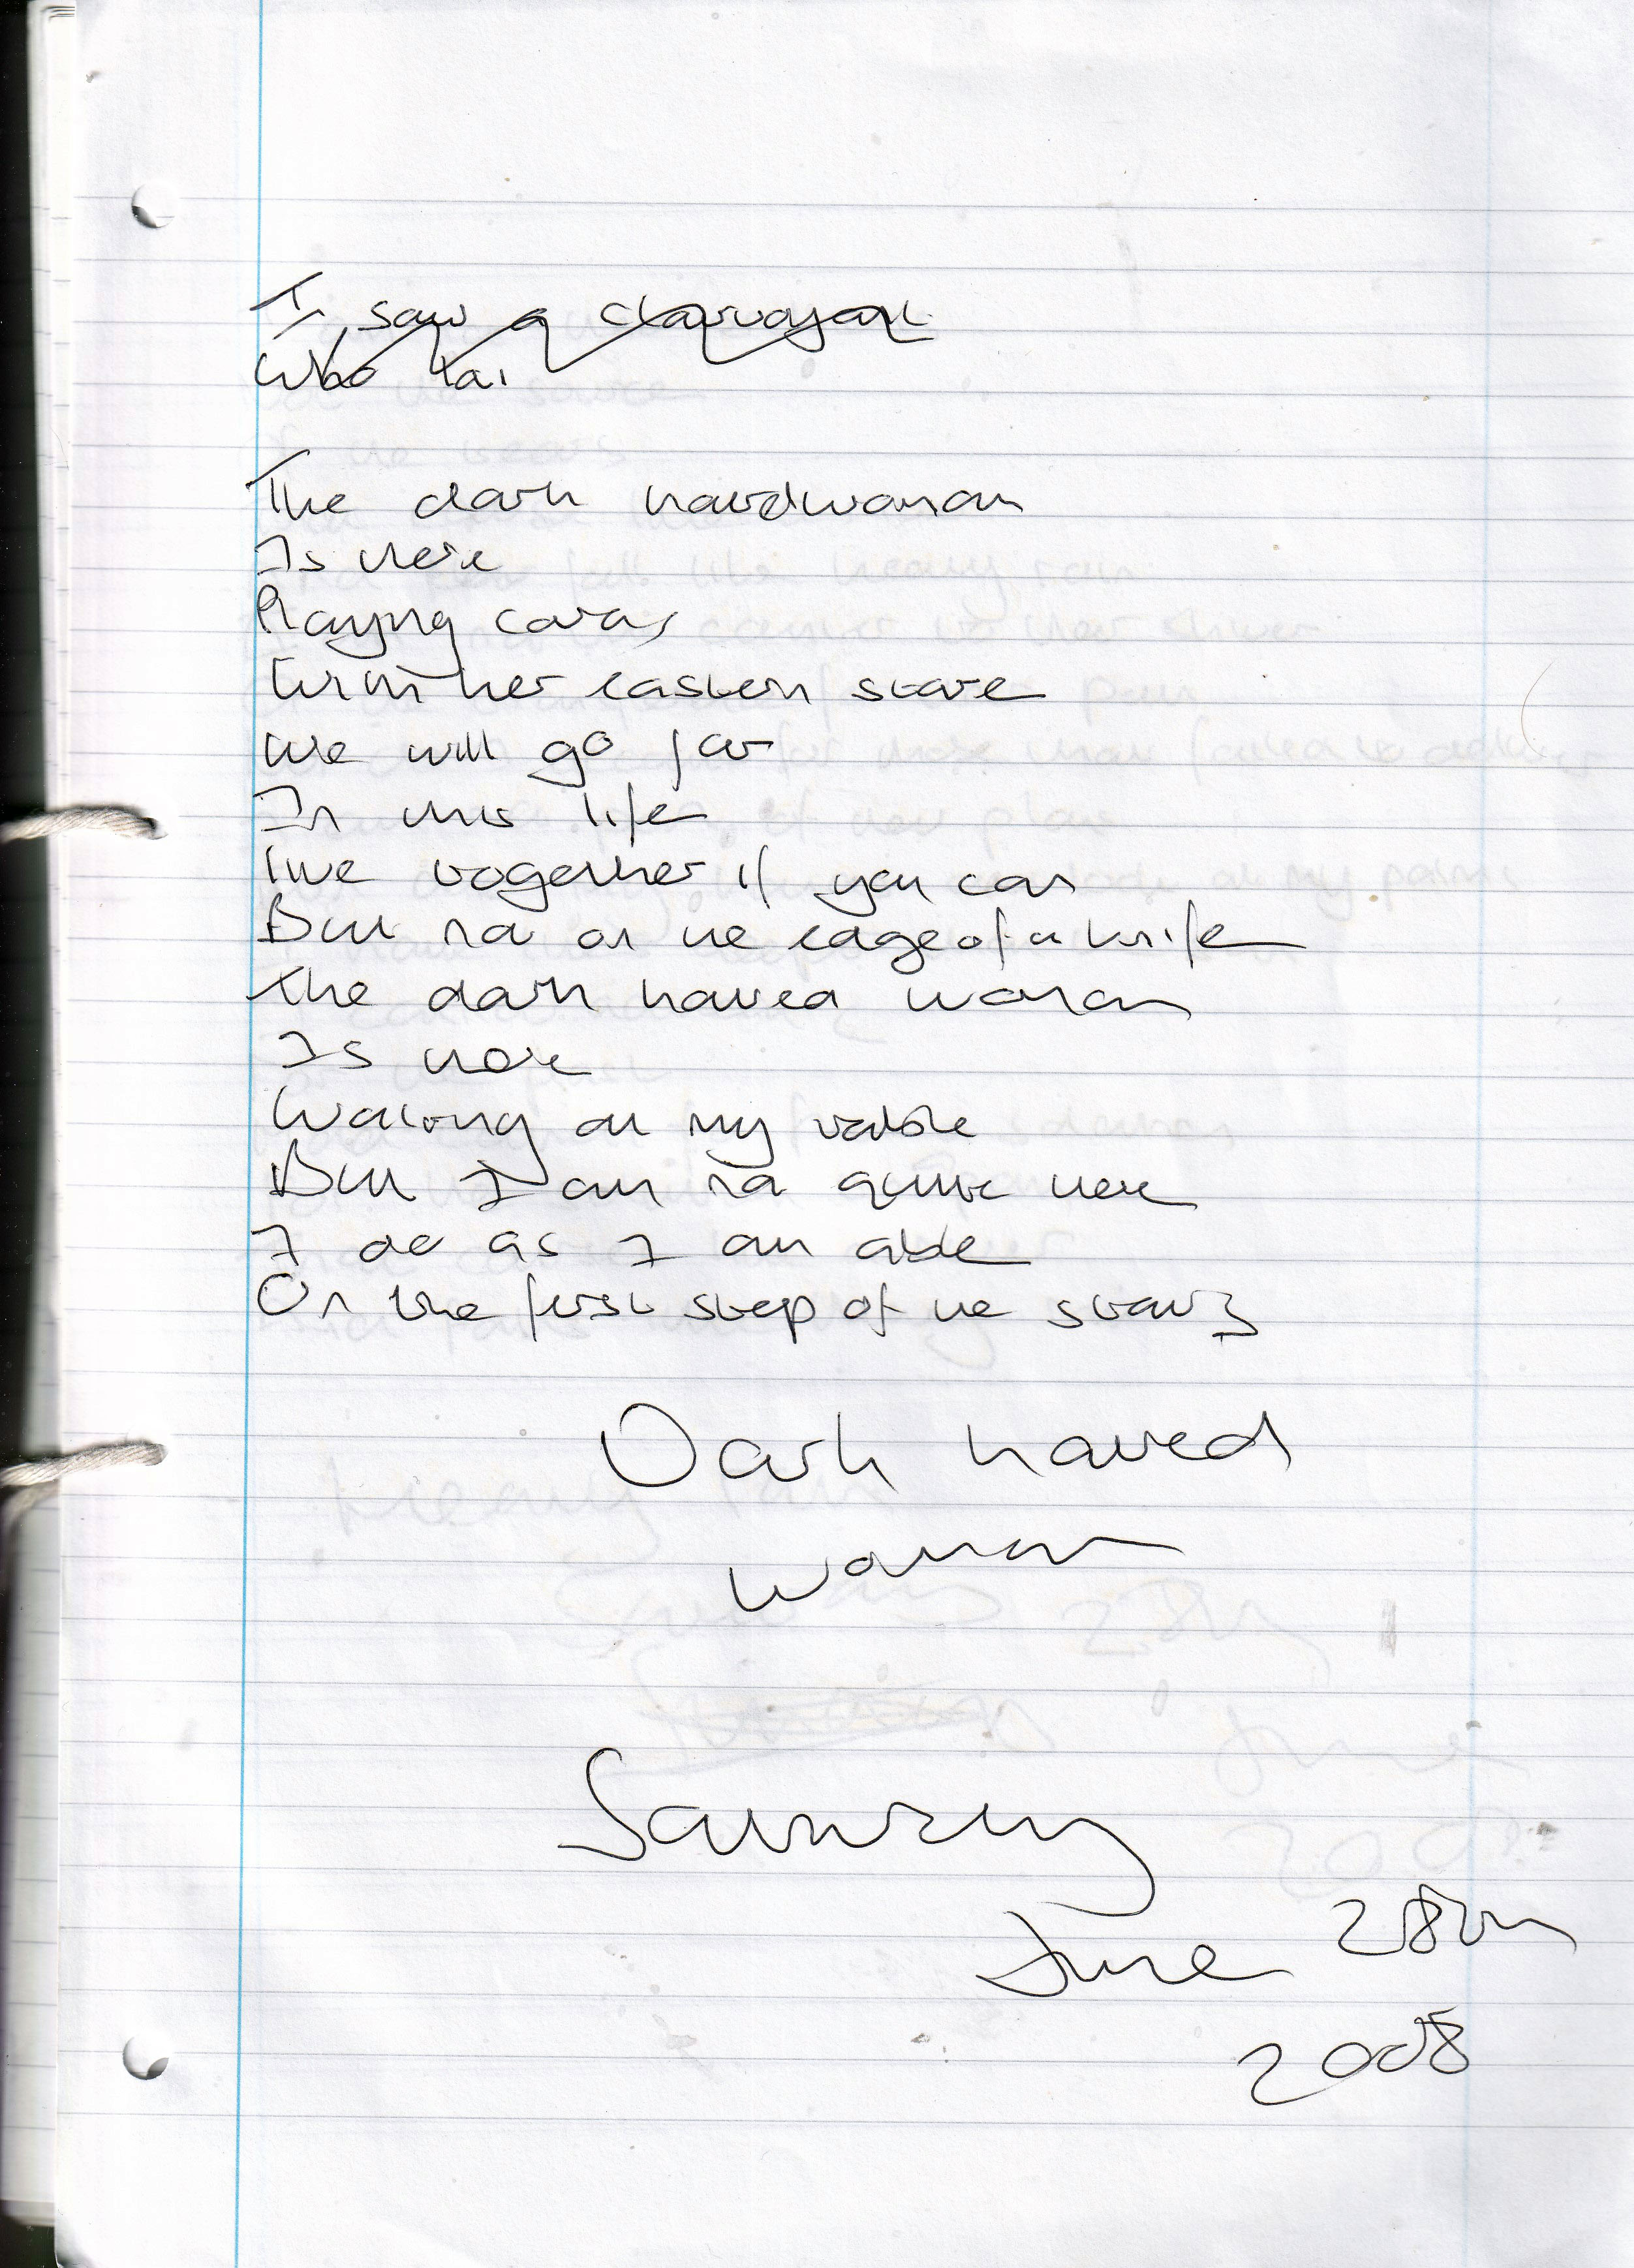 I saw a clairvoyant
Who
The dark haired woman
Is here
Playing cards
With her eastern stare
We will go far
In this life
Live together if you can
But not on the edge of a knife
The dark haired woman
Is here
Waiting at my table
But I am not quite here
I do as I am able
On the first step of the stairs
Dark haired
woman
Saturday
June 28th
2008